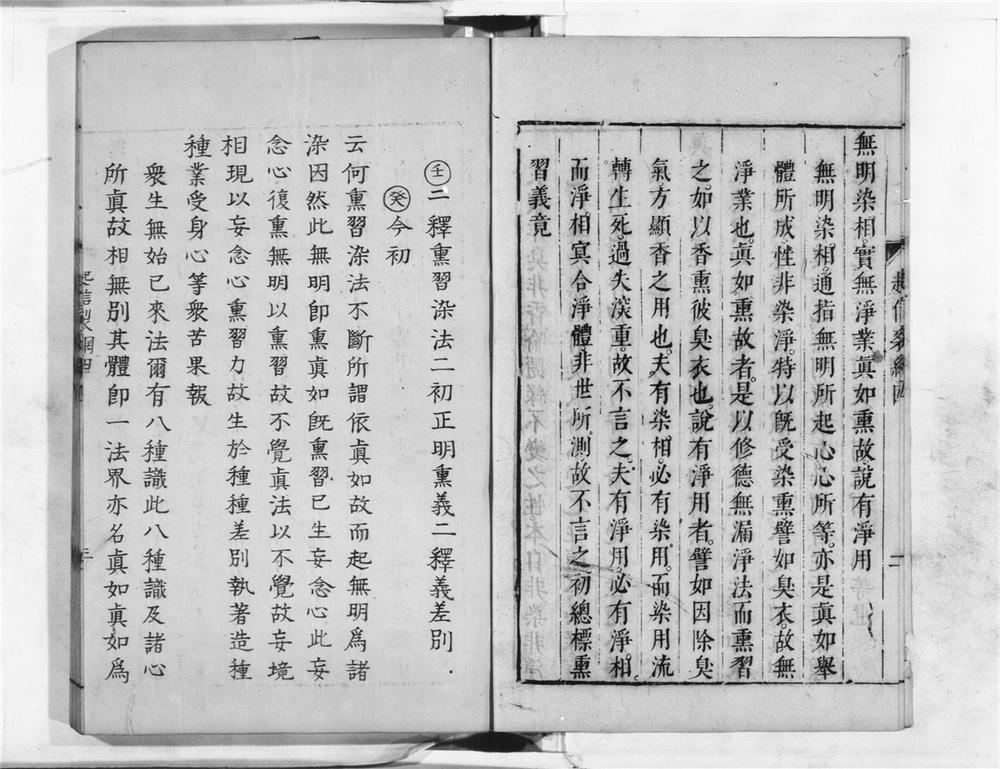 無明染相。實無淨業。眞如熏故。說有淨用
無明染相。通指無明所起心心所等。亦是眞如舉
體所成。性非染淨。特以旣受染熏。譬如臭衣。故無
淨業也。眞如熏故者。是以修德無漏淨法而熏習
之。如以香熏彼臭衣也。說有淨用者。譬如因除臭
氣方顯香之用也。夫有染相。必有染用。而染用流
轉生死。過失深重。故不言之。夫有淨用。必有淨相。
而淨相冥合淨體。非世所測。故不言之。初總標熏
習義竟
壬二釋熏習染法二初正明熏義二釋義差別
癸今初
云何熏習染法不斷所謂依眞如故而起無明爲諸
染因然此無明卽熏眞如旣熏習已生妄念心此妄
念心復熏無明以熏習故不覺眞法以不覺故妄境
相現以妄念心熏習力故生於種種差別執著造種
種業受身心等衆苦果報
衆生無始已來法爾有八種識此八種識及諸心
所眞故相無別其體卽一法界亦名眞如眞如爲